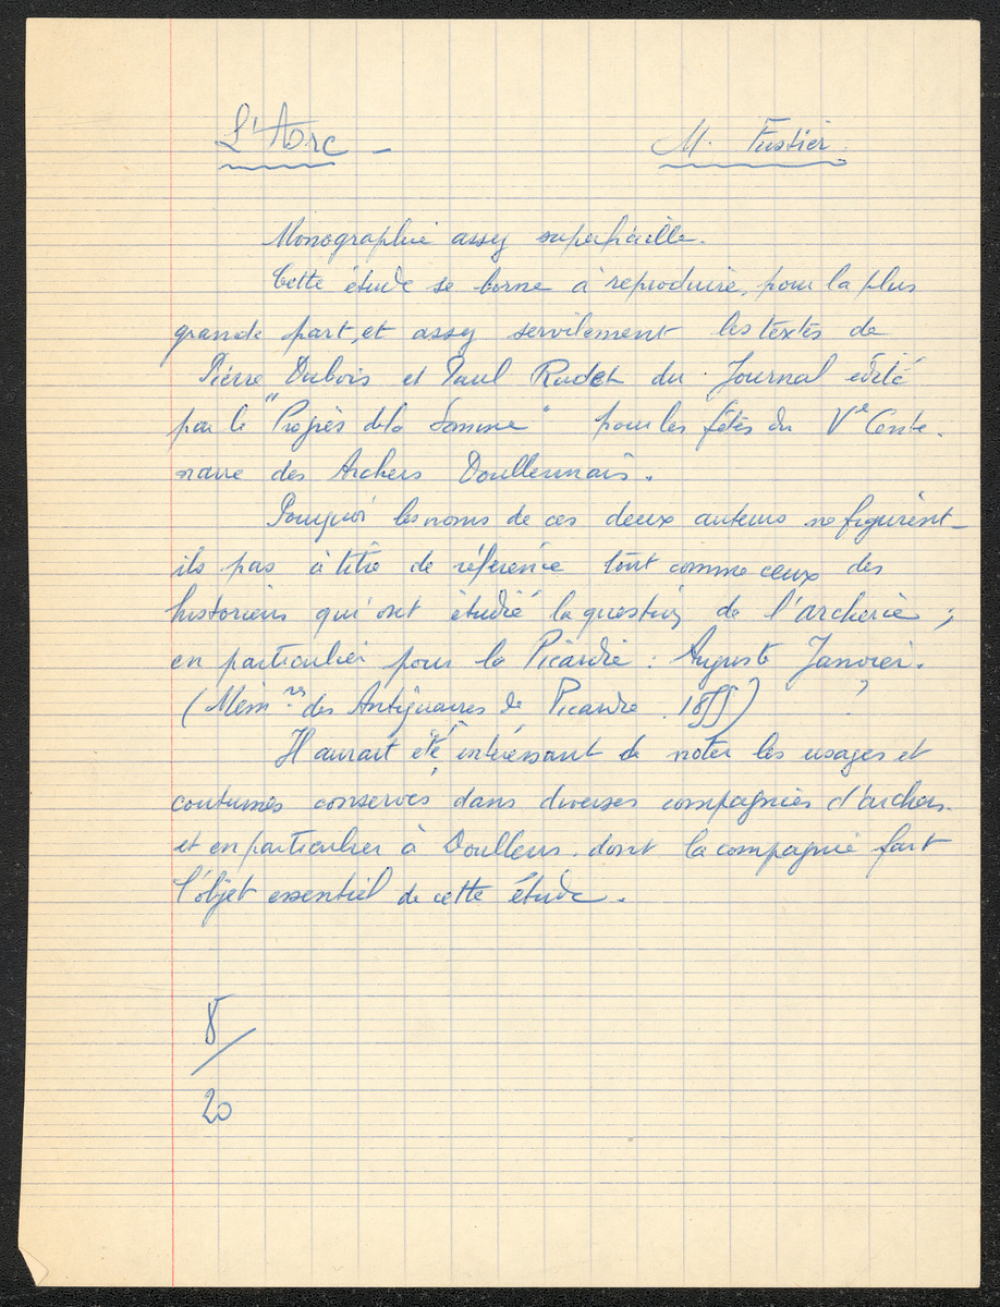 L'Arc –
M. Fustier.
Monographie assez superficielle.
Cette étude se borne à reproduire, pour la plus
grande part, et assez servilement les textes de
Pierre Dubois et Paul Radet du Journal édité
par le "Progrès de la Somme" pour les fêtes du Ve Cente-
naire des Archers Doullennais.
Pourquoi les noms de ces deux auteurs ne figurent-
ils pas à titre de référence tout comme ceux des
historiens qui ont étudié la question de l'archerie ;
en particulier pour la Picardie : Auguste Janvier.
(Mém.res des Antiquaires de Picardie. 1855) ?
Il aurait été intéressant de noter les usages et
coutumes conservés dans diverses compagnies d'archers
et en particulier à Doullens, dont la compagnie fait
l'objet essentiel de cette étude.
8/
20